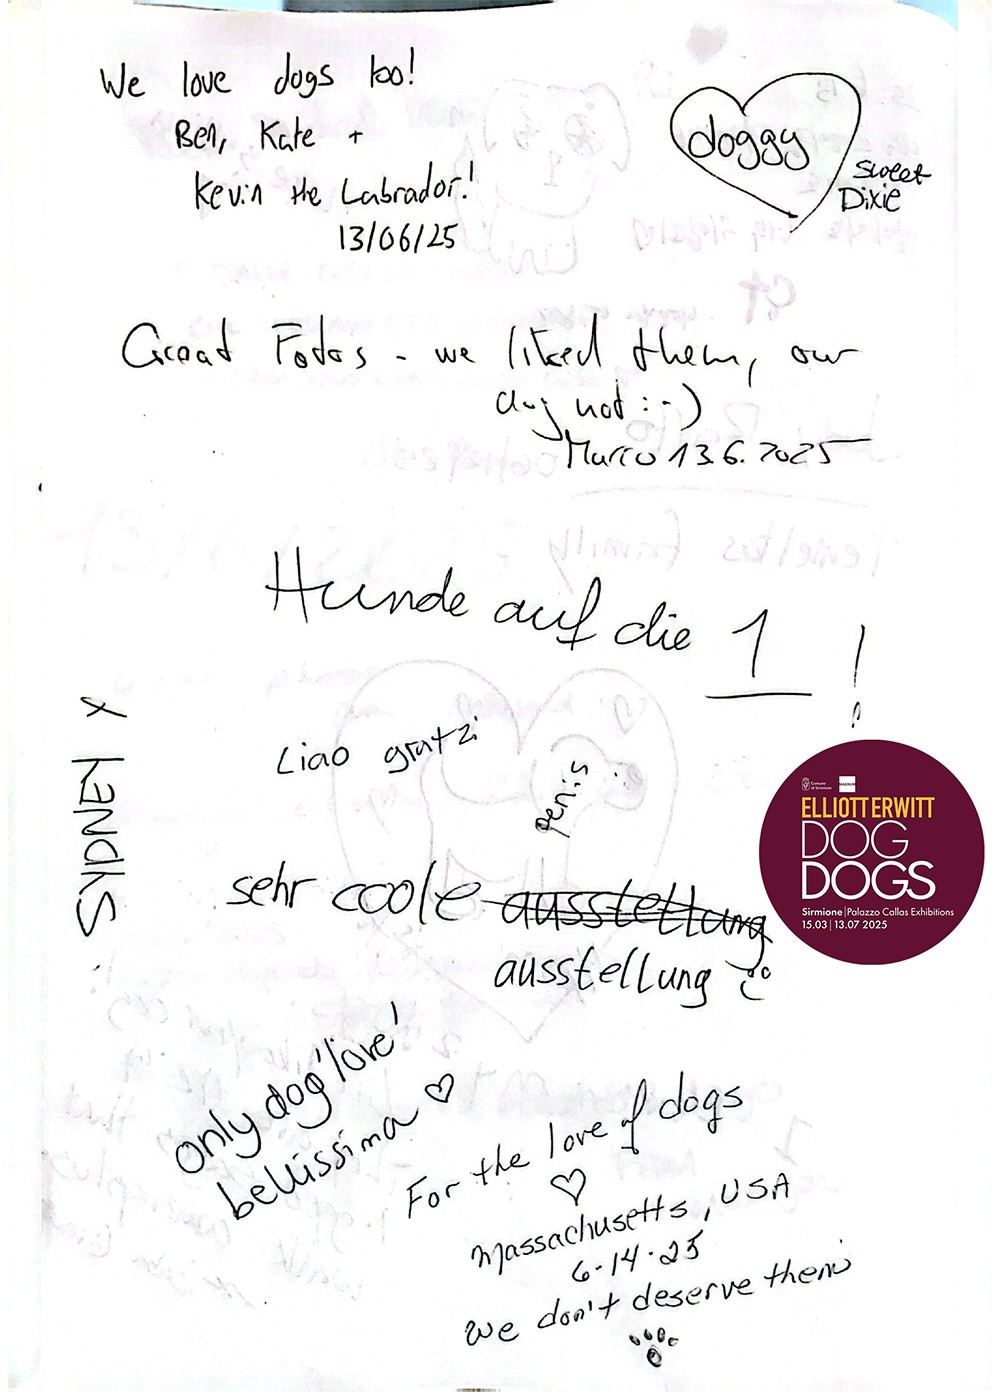 We love dogs too!
Ben, Kate +
Kevin the Labrador!
13/06/25
doggy
sweet
Dixie
Great Fotos - we liked them, our
dog not :-)
Marco 13.6.2025
Hunde auf die 1 !
SYDNEY X
Ciao gratzi
penis
sehr coole ausstettung
ausstellung
only dog 'love'
bellissima ♡
For the love of dogs
♡
Massachusetts, USA
6-14-25
We don't deserve them
Comune
di Sirmione
MAGNUM
ELLIOTT ERWITT
DOG
DOGS
Sirmione | Palazzo Callas Exhibitions
15.03 | 13.07 2025